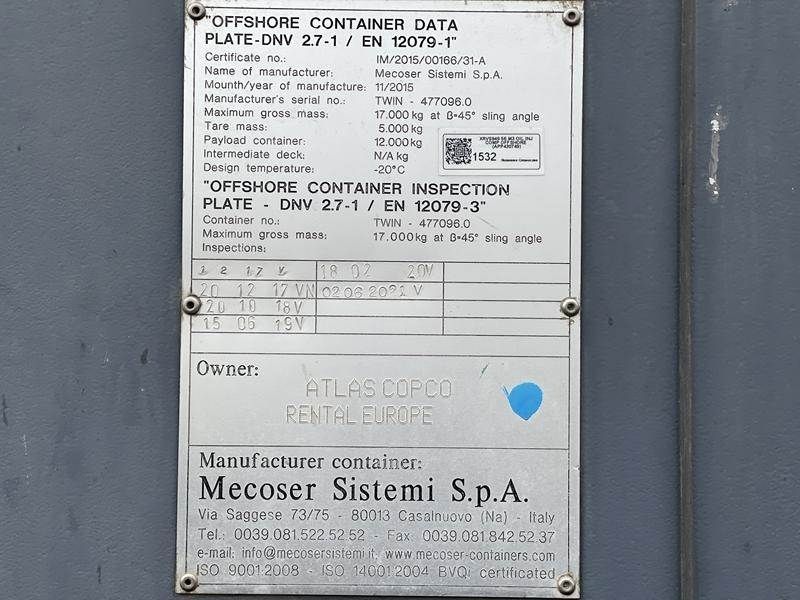 "OFFSHORE CONTAINER DATA
PLATE-DNV 2.7-1 / EN 12079-1"
Certificate no.: IM/2015/00166/31-A
Name of manufacturer: Mecoser Sistemi S.p.A.
Mounth/year of manufacture: 11/2015
Manufacturer's serial no.: TWIN - 477096.0
Maximum gross mass: 17.000 kg at β=45° sling angle
Tare mass: 5.000 kg
Payload container: 12.000 kg
Intermediate deck: N/A kg
Design temperature: -20°C
COMP OFFSHORE
1532
"OFFSHORE CONTAINER INSPECTION
PLATE - DNV 2.7-1 / EN 12079-3"
Container no.: TWIN - 477096.0
Maximum gross mass: 17.000kg at β=45° sling angle
Inspections:
17 V 18 02 20V
20 12 17 VN 02.06.2021 V
20 10 18V
15 06 19V
Owner:
ATLAS COPCO
RENTAL EUROPE
Manufacturer container:
Mecoser Sistemi S.p.A.
Via Saggese 73/75 - 80013 Casalnuovo (Na) - Italy
Tel.: 0039.081.522.52.52 - Fax 0039.081.842.52.37
e-mail: info@mecosersistemi.it, www.mecoser-containers.com
ISO 9001:2008 - ISO 14001:2004 BVQi certificated